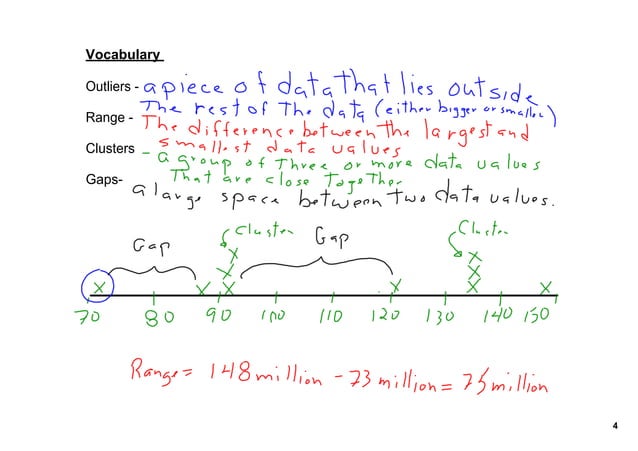 Vocabulary
Outliers - a piece of data That lies outside
The rest of The data (either bigger or smaller)
Range - The difference between the largest and
smallest data values
Clusters - a group of Three or more data values
That are close Together
Gaps- a large space between two data values.
Cluster Cluster
Gap Gap
70 80 90 100 110 120 130 140 150
Range = 148 million - 73 million = 75 million
4